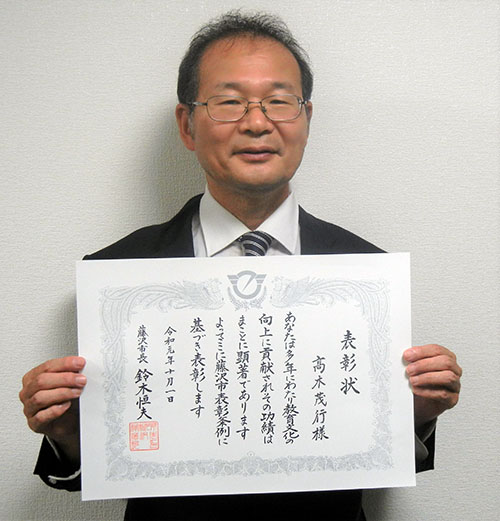 表彰状
高木茂行様
あなたは多年にわたり教育文化の
向上に貢献されその功績は
まことに顕著であります
よってここに藤沢市表彰条例に
基づき表彰します
令和元年十月一日
藤沢市長 鈴木恒夫